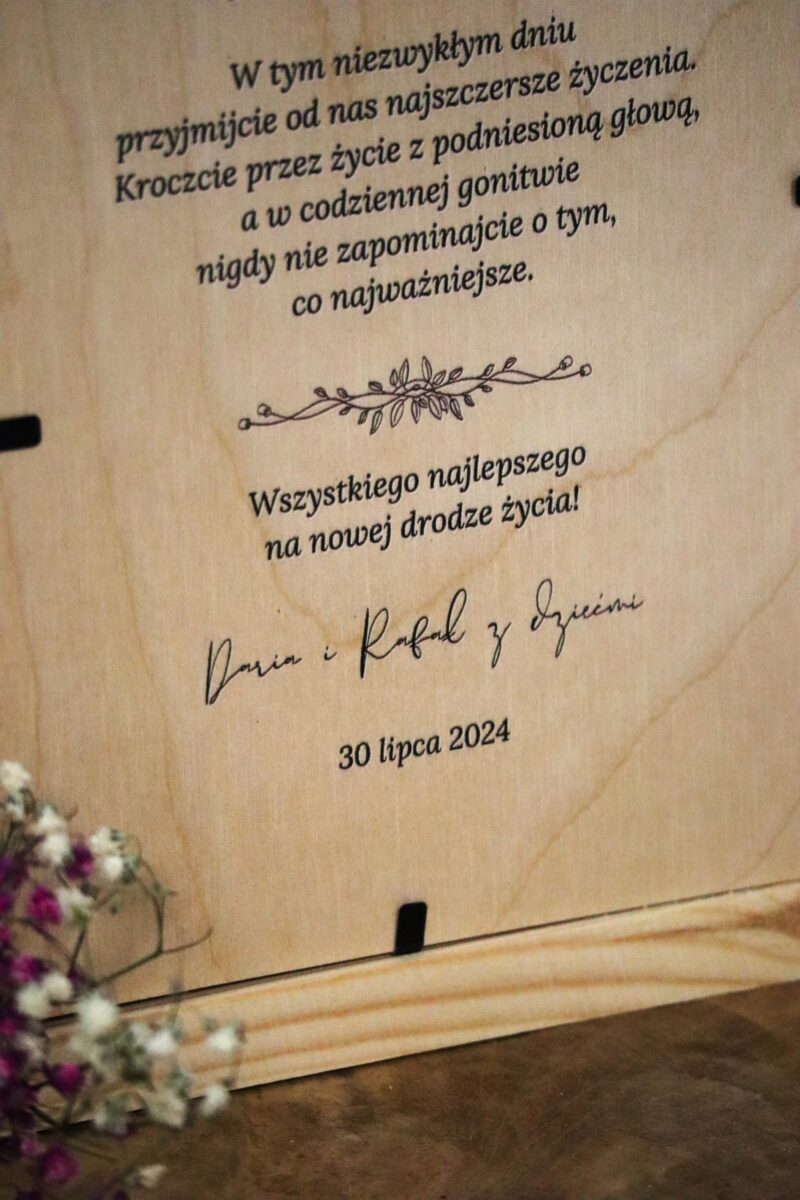 W tym niezwykłym dniu
przyjmijcie od nas najszczersze życzenia.
Kroczcie przez życie z podniesioną głową,
a w codziennej gonitwie
nigdy nie zapominajcie o tym,
co najważniejsze.
Wszystkiego najlepszego
na nowej drodze życia!
Daria i Rafał z dziećmi
30 lipca 2024